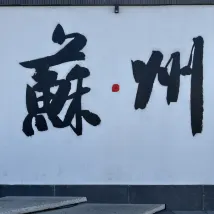 蘇·州